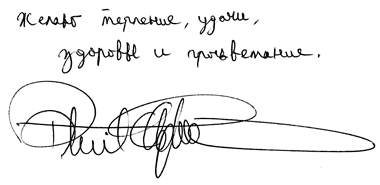 Желаю терпение, удачи,
здоровье и процветание.